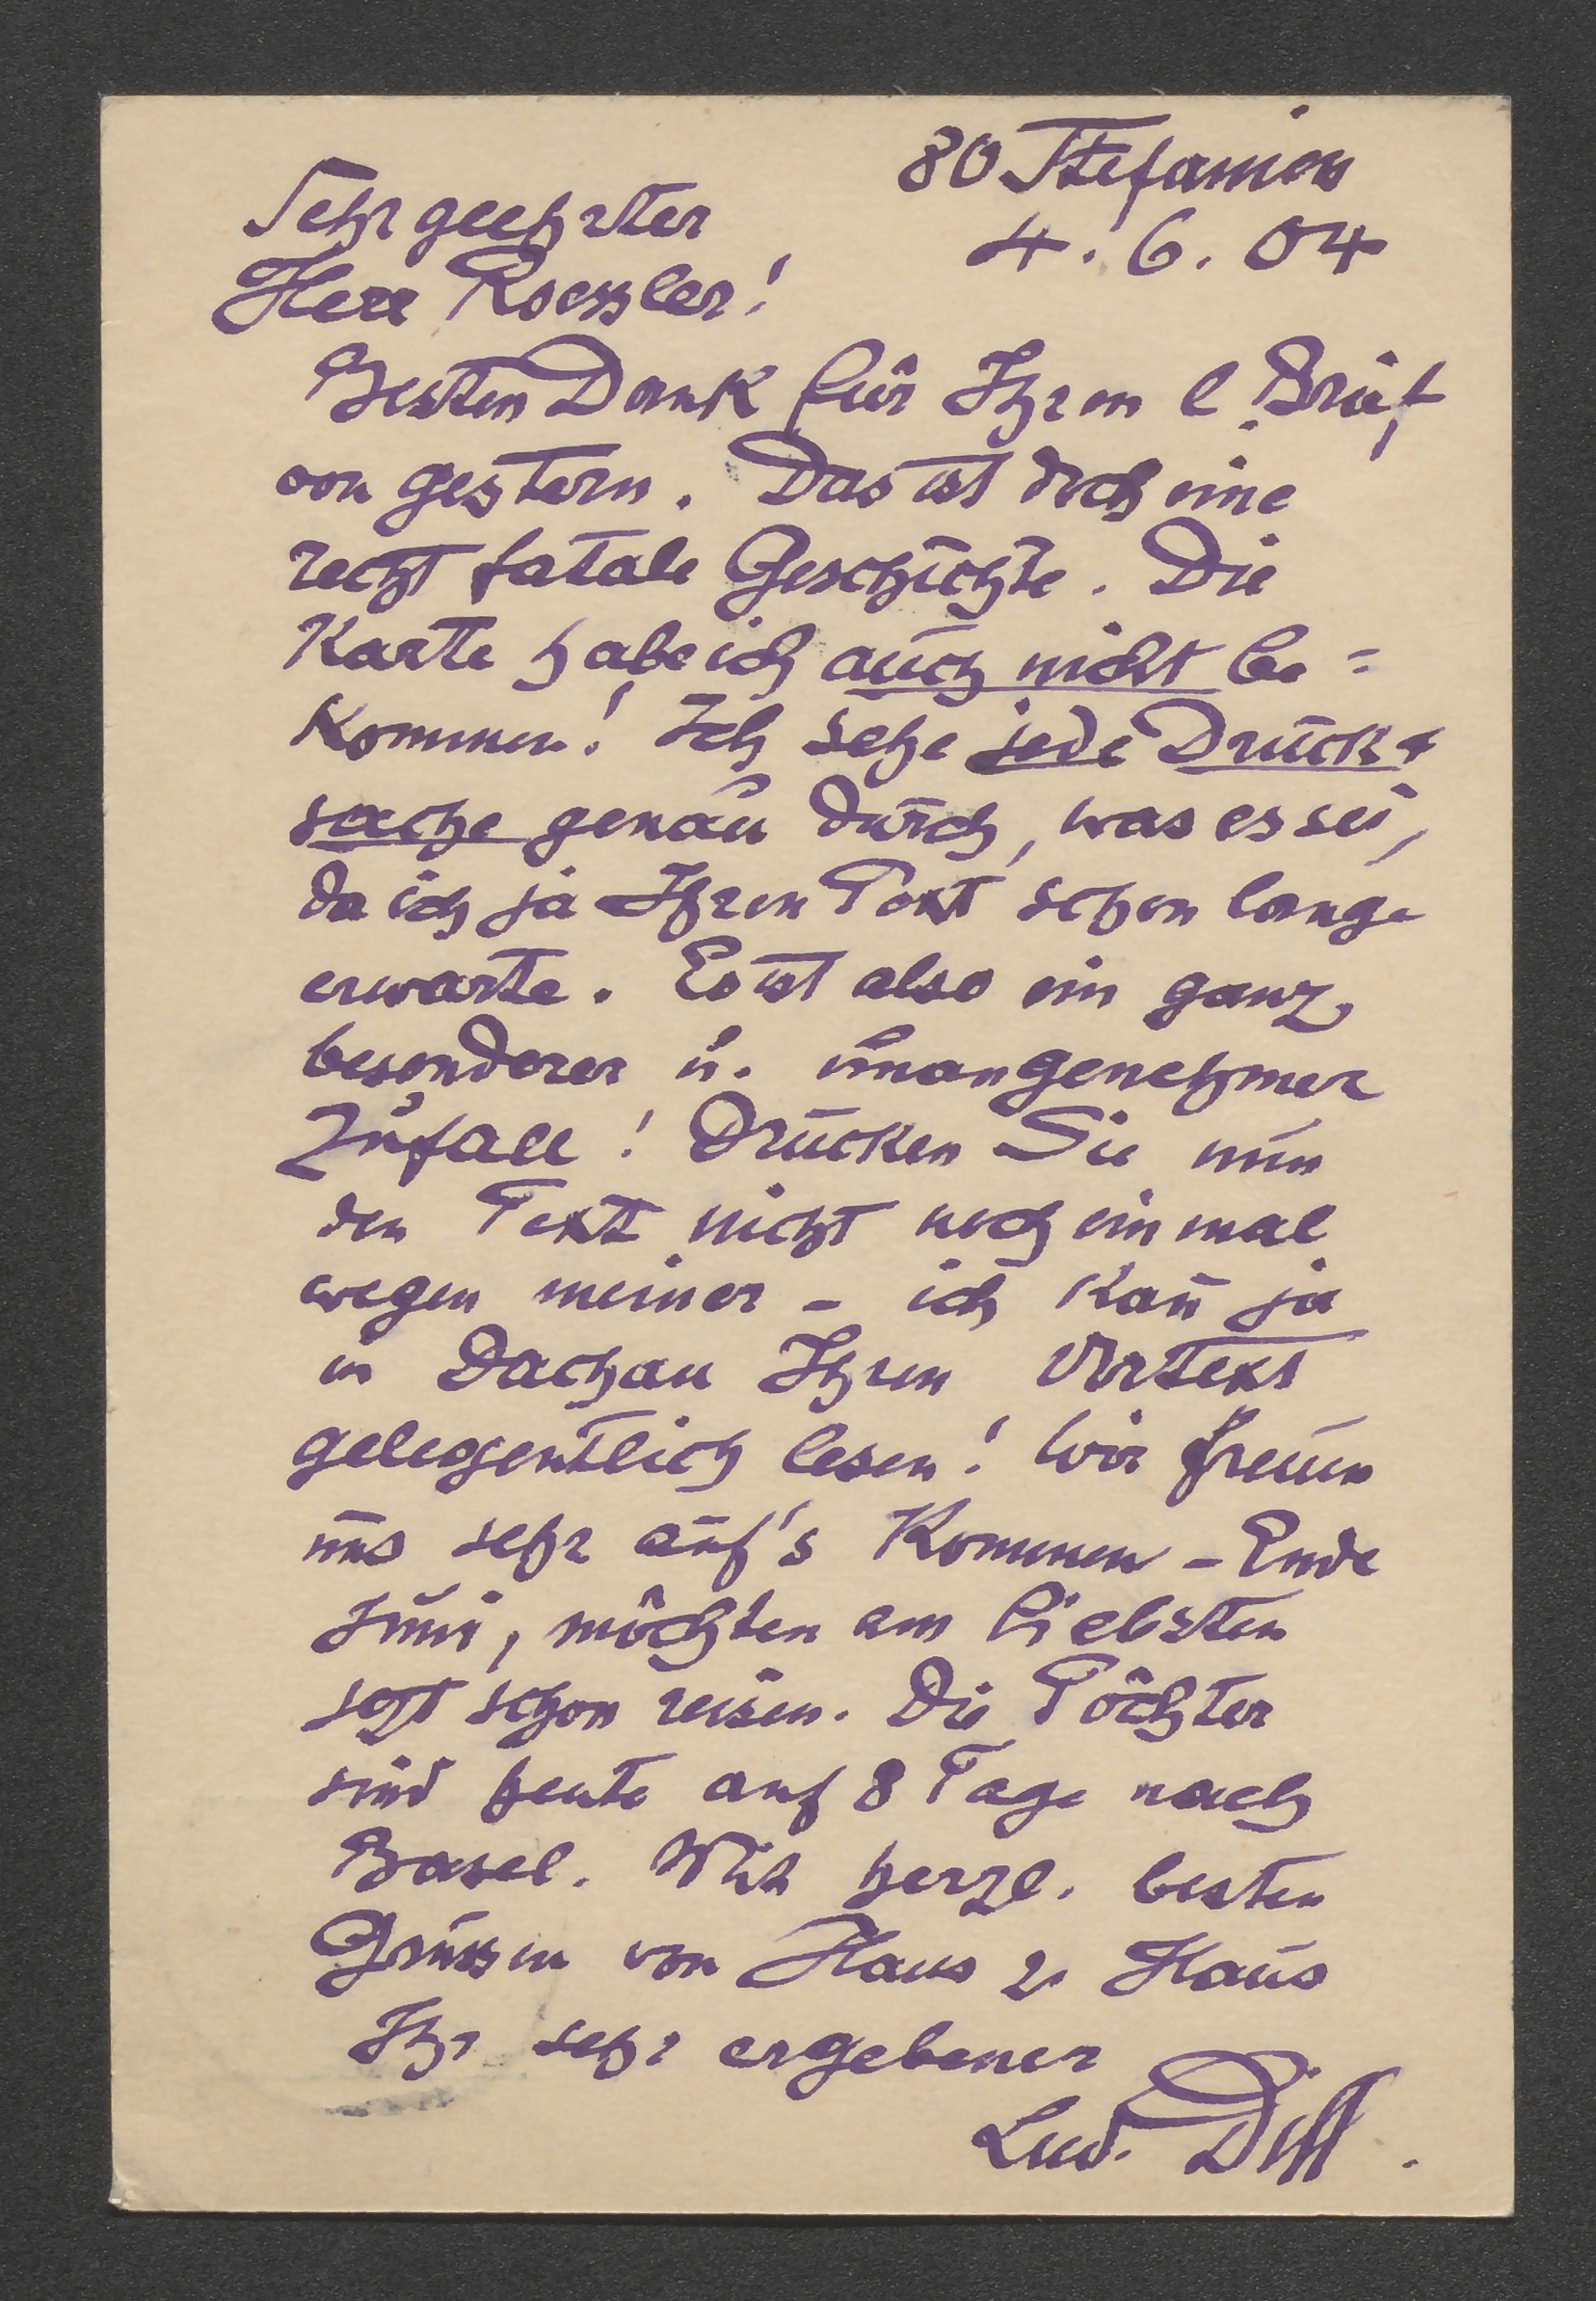 80 Stefanien
4.6.04
Sehr geehrter
Herr Roessler!
Besten Dank für Ihren l. Brief
von gestern. Das ist doch eine
recht fatale Geschichte. Die
Karte habe ich auch nicht be=
kommen! Ich sehe jede Druck=
sache genau durch, was es sei,
da ich ja Ihren Text schon lange
erwarte. Es ist also ein ganz
besonderer u. unangenehmer
Zufall! Drucken Sie nun
den Text nicht noch einmal
wegen meiner – ich kan̄ ja
in Dachau Ihren Vortext
gelegentlich lesen! Wir freuen
uns sehr auf's Kommen – Ende
Juni, möchten am liebsten
jetzt schon reisen. Die Töchter
sind heute auf 8 Tage nach
Basel. Mit herzl. besten
Grüssen von Haus z. Haus
Ihr sehr ergebener
Lud. Dill.